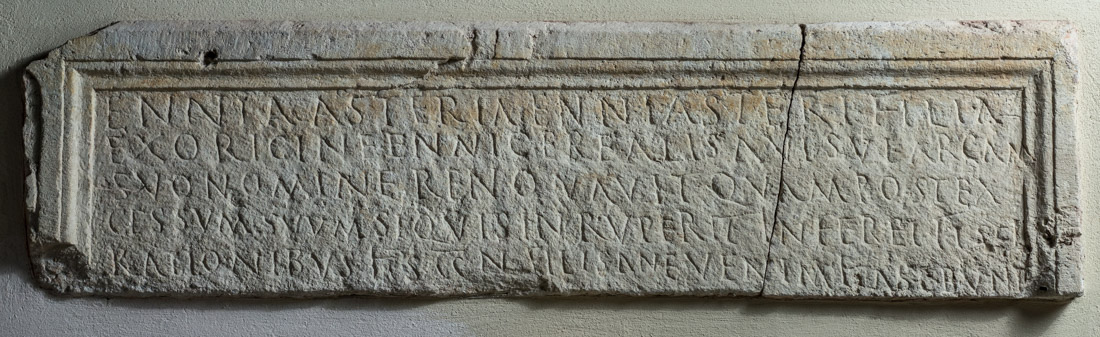 ENNIA ASTERIA ENNI ASTERI FILIA
EX ORIGINE ENNI CEREALIS AVI SVE ARCAM
SVO NOMINE RENOVAVIT QVAM POST EX
CESSVM SVVM SI QVIS INRVPERIT INFERET
RATIONIBVS